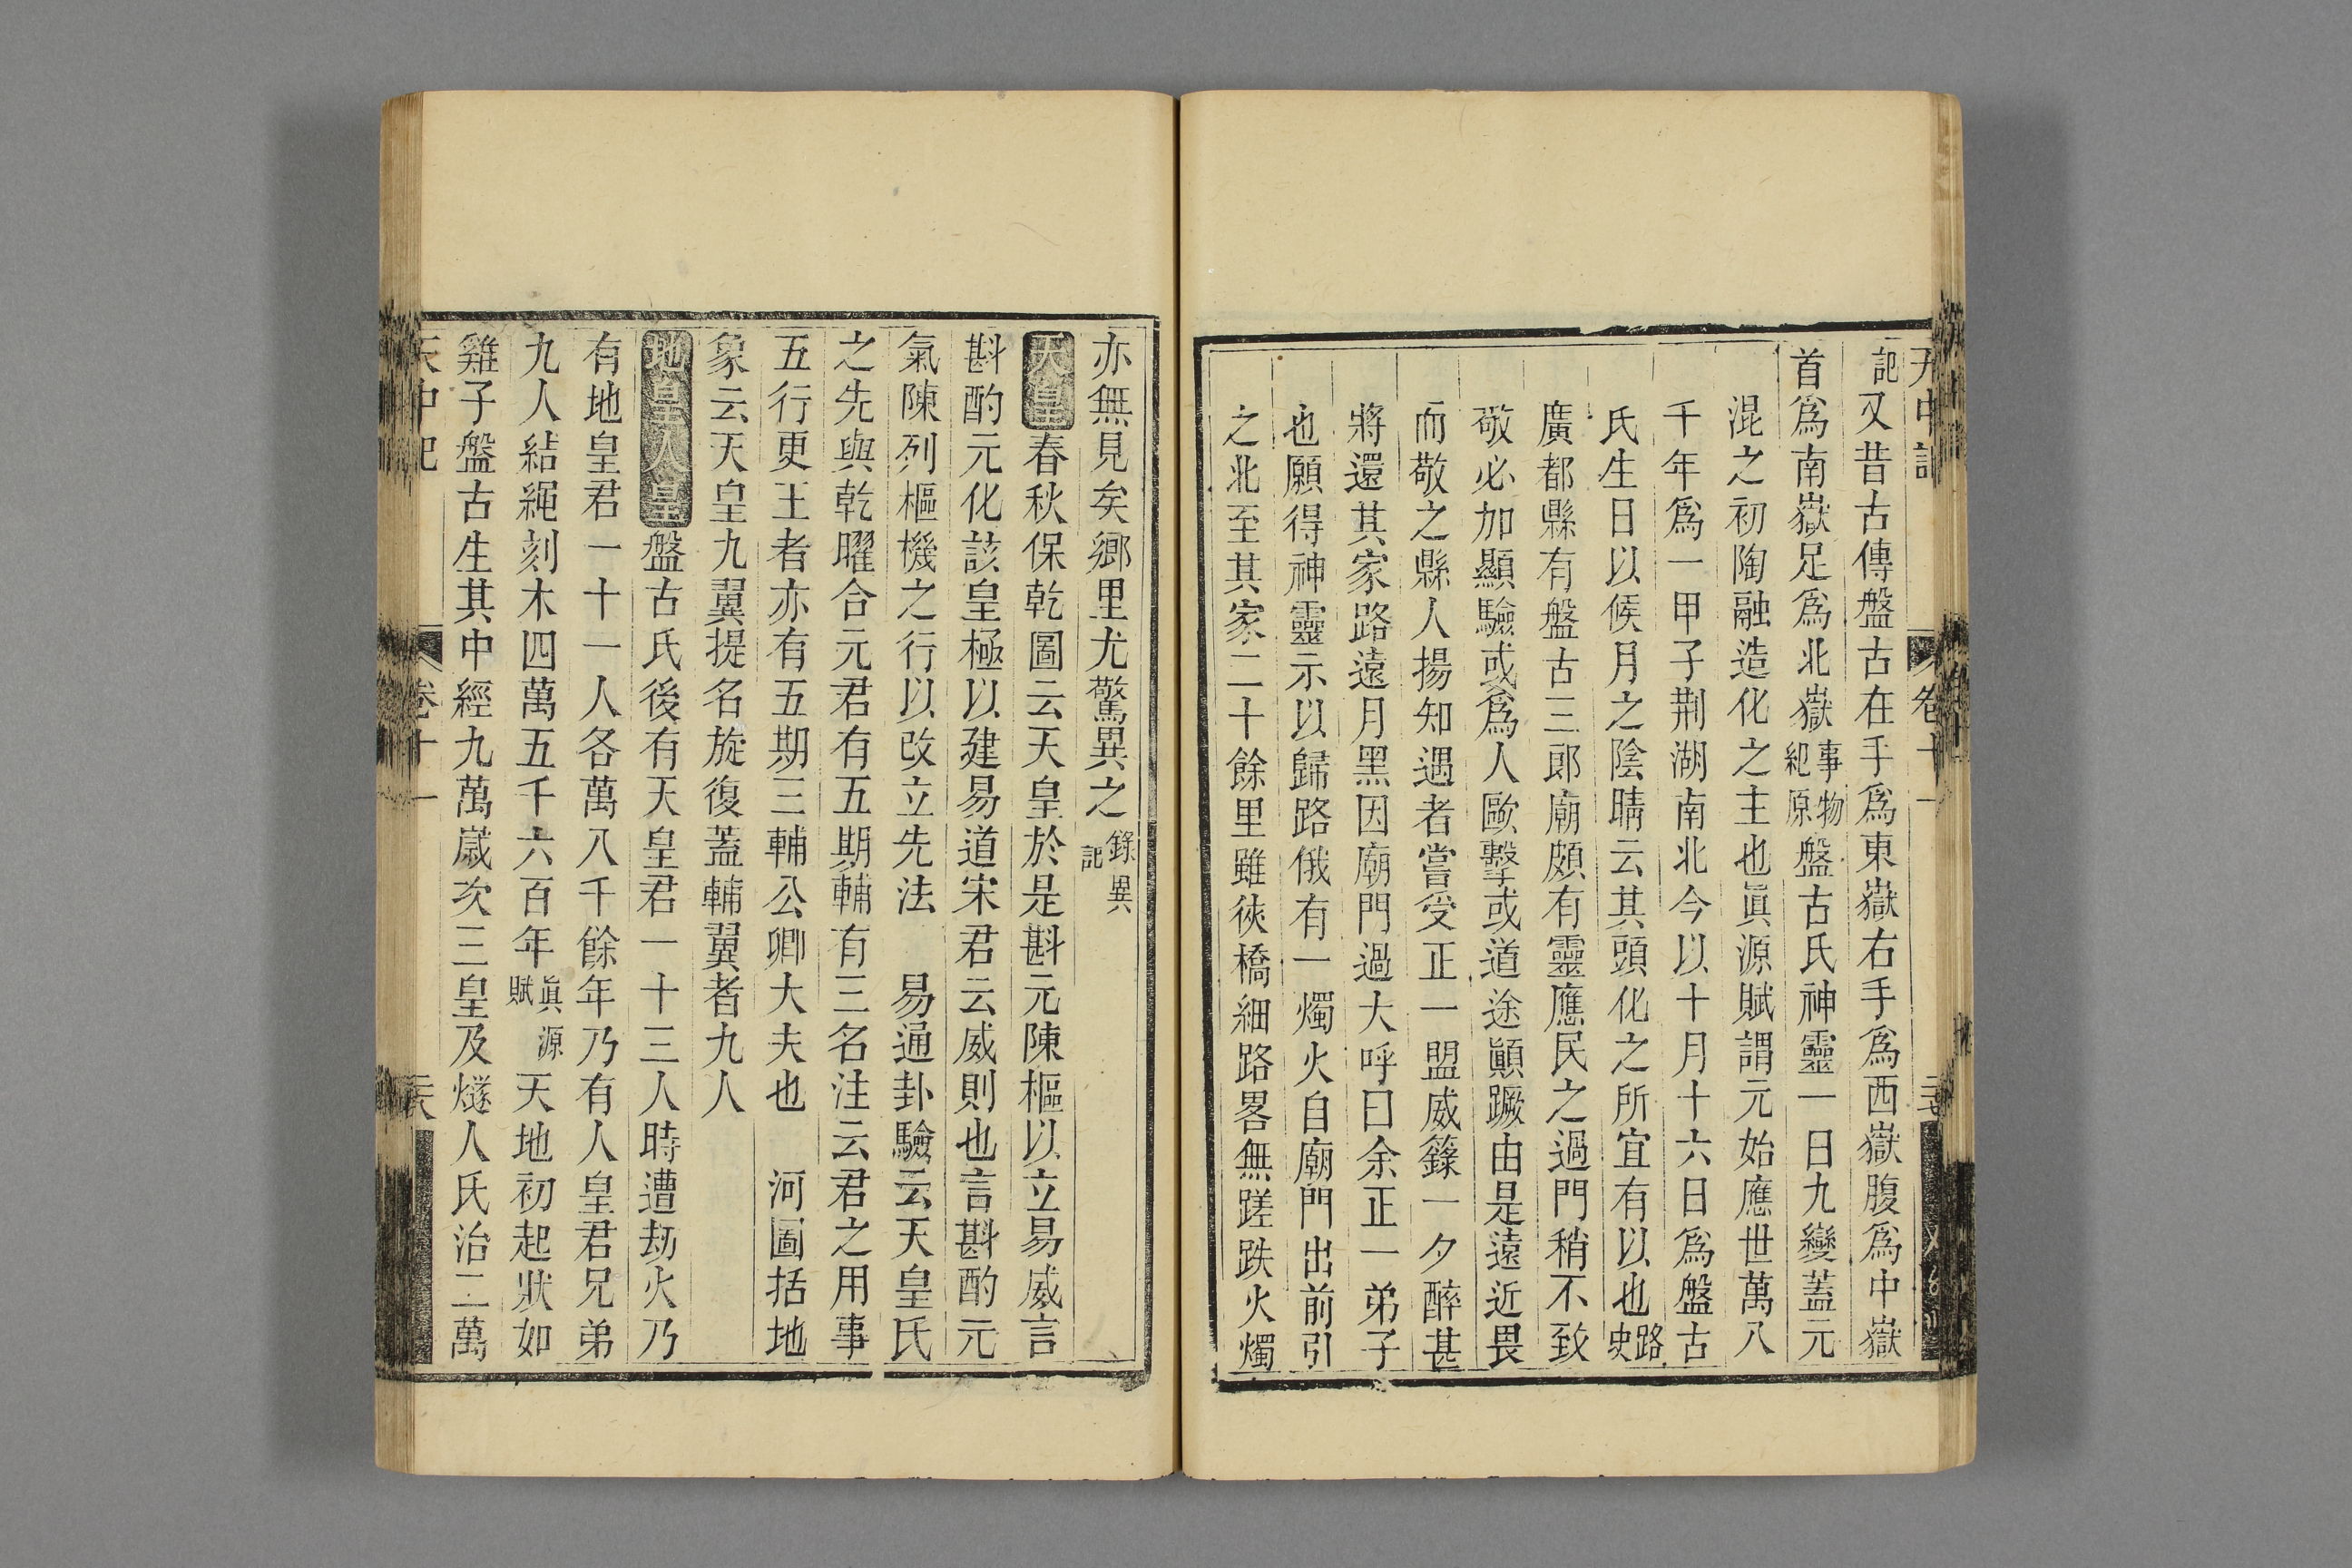 天中記
卷十一
記又昔古傳盤古在手爲東嶽右手爲西嶽腹爲中嶽
首爲南嶽足爲北嶽事物紀原盤古氏神靈一日九變蓋元
混之初陶融造化之主也眞源賦謂元始應世萬八
千年爲一甲子荆湖南北今以十月十六日爲盤古
氏生日以候月之陰晴云其頭化之所宜有以也路史
廣都縣有盤古三郎廟頗有靈應民之過門稍不致
敬必加顯驗或爲人歐擊或道途顚蹶由是遠近畏
而敬之縣人揚知遇者嘗受正一盟威籙一夕醉甚
將還其家路遠月黑因廟門過大呼曰余正一弟子
也願得神靈示以歸路俄有一燭火自廟門出前引
之北至其家二十餘里雖狹橋細路畧無蹉跌火燭
亦無見矣鄉里尤驚異之錄異記
天皇春秋保乾圖云天皇於是斟元陳樞以立易威言
斟酌元化該皇極以建易道宋君云威則也言斟酌元
氣陳列樞機之行以改立先法 易通卦驗云天皇氏
之先與乾曜合元君有五期輔有三名注云君之用事
五行更王者亦有五期三輔公卿大夫也 河圖括地
象云天皇九翼提名旋復蓋輔翼者九人
地皇人皇盤古氏後有天皇君一十三人時遭劫火乃
有地皇君一十一人各萬八千餘年乃有人皇君兄弟
九人結繩刻木四萬五千六百年眞源賦天地初起狀如
雞子盤古生其中經九萬歲次三皇及燧人氏治二萬
天中記
卷十一